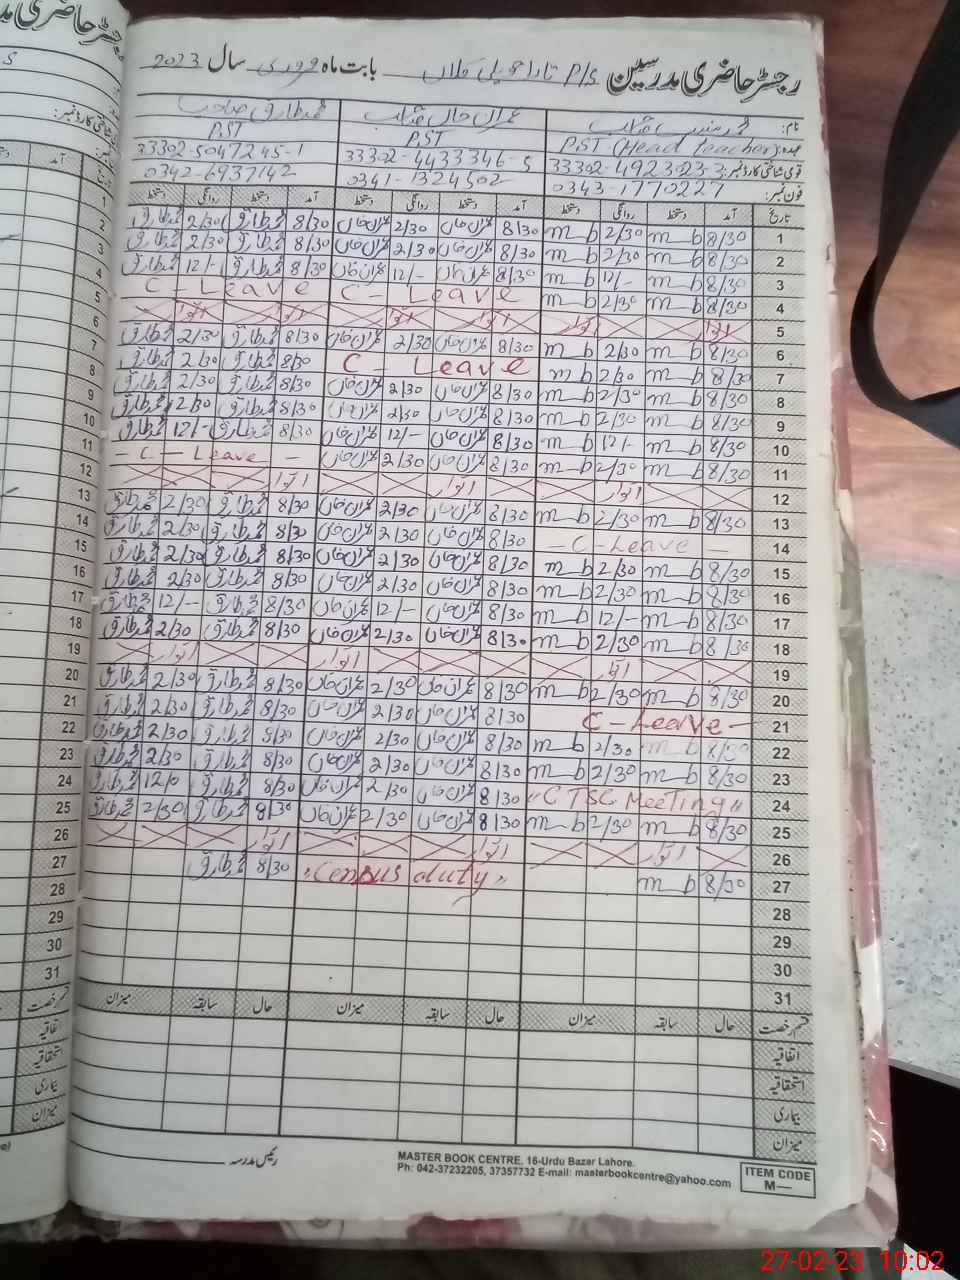 رجسٹر حاضری مدرسین P/S بابت ماہ فروری سال 2023
نام: عمران خان صاحب محمد طارق صاحب
PST (Head teacher) PST PST
قومی شناختی کارڈ نمبر: 33302-4923023-3 33302-4433346-5 33302-5047245-1
فون نمبر: 0343-1770227 0341-1324502 0342-6937142
تاریخ آمد دستخط روانگی دستخط آمد دستخط روانگی دستخط آمد دستخط روانگی دستخط
1 8/30 m b 2/30 m b 8/30 عمران خان 2/30 عمران خان 8/30 محمد طارق 2/30 محمد طارق
2 8/30 m b 2/30 m b 8/30 عمران خان 2/30 عمران خان 8/30 محمد طارق 2/30 محمد طارق
3 8/30 m b 12/- m b 8/30 عمران خان 12/- عمران خان 8/30 محمد طارق 12/- محمد طارق
4 8/30 m b 2/30 m b C - Leave C - Leave
5 اتوار اتوار اتوار اتوار اتوار
6 8/30 m b 2/30 m b 8/30 عمران خان 2/30 عمران خان 8/30 محمد طارق 2/30 محمد طارق
7 8/30 m b 2/30 m b C - Leave 8/30 محمد طارق 2/30 محمد طارق
8 8/30 m b 2/30 m b 8/30 عمران خان 2/30 عمران خان 8/30 محمد طارق 2/30 محمد طارق
9 8/30 m b 2/30 m b 8/30 عمران خان 2/30 عمران خان 8/30 محمد طارق 2/30 محمد طارق
10 8/30 m b 12/- m b 8/30 عمران خان 12/- عمران خان 8/30 محمد طارق 12/- محمد طارق
11 8/30 m b 2/30 m b 8/30 عمران خان 2/30 عمران خان - C - Leave -
12 اتوار اتوار اتوار
13 8/30 m b 2/30 m b 8/30 عمران خان 2/30 عمران خان 8/30 محمد طارق 2/30 محمد طارق
14 - C - Leave - 8/30 عمران خان 2/30 عمران خان 8/30 محمد طارق 2/30 محمد طارق
15 8/30 m b 2/30 m b 8/30 عمران خان 2/30 عمران خان 8/30 محمد طارق 2/30 محمد طارق
16 8/30 m b 2/30 m b 8/30 عمران خان 2/30 عمران خان 8/30 محمد طارق 2/30 محمد طارق
17 8/30 m b 12/- m b 8/30 عمران خان 12/- عمران خان 8/30 محمد طارق 12/- محمد طارق
18 8/30 m b 2/30 m b 8/30 عمران خان 2/30 عمران خان 8/30 محمد طارق 2/30 محمد طارق
19 اتوار اتوار اتوار
20 8/30 m b 2/30 m b 8/30 عمران خان 2/30 عمران خان 8/30 محمد طارق 2/30 محمد طارق
21 C - Leave - 8/30 عمران خان 2/30 عمران خان 8/30 محمد طارق 2/30 محمد طارق
22 8/30 m b 2/30 m b 8/30 عمران خان 2/30 عمران خان 8/30 محمد طارق 2/30 محمد طارق
23 8/30 m b 2/30 m b 8/30 عمران خان 2/30 عمران خان 8/30 محمد طارق 2/30 محمد طارق
24 "CTSC Meeting" 8/30 عمران خان 2/30 عمران خان 8/30 محمد طارق 12/0 محمد طارق
25 8/30 m b 2/30 m b 8/30 عمران خان 2/30 عمران خان 8/30 محمد طارق 2/30 محمد طارق
26 اتوار اتوار اتوار
27 8/30 m b "Census duty" 8/30 محمد طارق
28
29
30
31
قسم رخصت حال سابقہ میزان حال سابقہ میزان حال سابقہ میزان
اتفاقیہ
استحقاقیہ
بیماری
میزان
رئیس مدرسہ
MASTER BOOK CENTRE, 16-Urdu Bazar Lahore.
Ph: 042-37232205, 37357732 E-mail: masterbookcentre@yahoo.com
ITEM CODE
M—
27-02-23 10:02